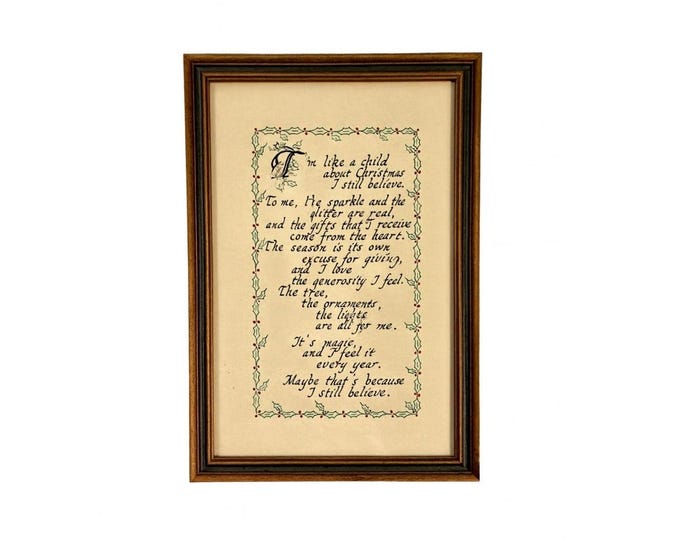 I'm like a child
about Christmas
I still believe.
To me, He sparkle and the
glitter are real,
and the gifts that I receive
come from the heart.
The season is its own
excuse for giving,
and I love
the generosity I feel.
The tree,
the ornaments,
the lights
are all for me.
It's magic,
and I feel it
every year.
Maybe that's because
I still believe.